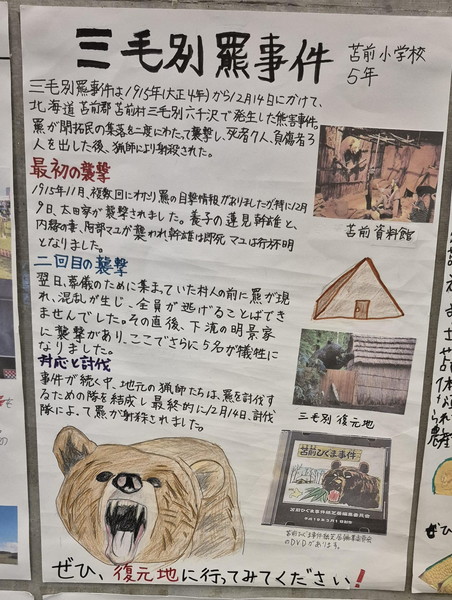 三毛別羆事件
苫前小学校
5年
三毛別羆事件は1915年(大正4年)から12月14日にかけて、
北海道苫前郡苫前村三毛別六千沢で発生した熊害事件。
羆が開拓民の集落を二度にわたって襲撃し、死者7人、負傷者3
人を出した後、猟師により射殺された。
最初の襲撃
1915年11月、複数回にわたり羆の目撃情報がありましたが、特に12月
9日、太田家が襲撃されました。養子の蓮見幹雄と、
内縁の妻、阿部マユが襲われ、幹雄は即死、マユは行方不明
となりました。
苫前資料館
二回目の襲撃
翌日、葬儀のために集まっていた村人の前に羆が現
れ、混乱が生じ、全員が逃げることはで
きませんでした。その直後、下流の明景家
に襲撃があり、ここでさらに5名が犠牲に
なりました。
三毛別 復元地
対応と討伐
事件が続く中、地元の猟師たちは、羆を討伐す
るための隊を結成し最終的に12月14日、討伐
隊によって羆が射殺されました。
苫前ひくま事件
苫前ひぐま事件紙芝居編集委員会
苫前ひぐま事件紙芝居編集委員会
のDVDがあります。
ぜひ、復元地に行ってみてください!